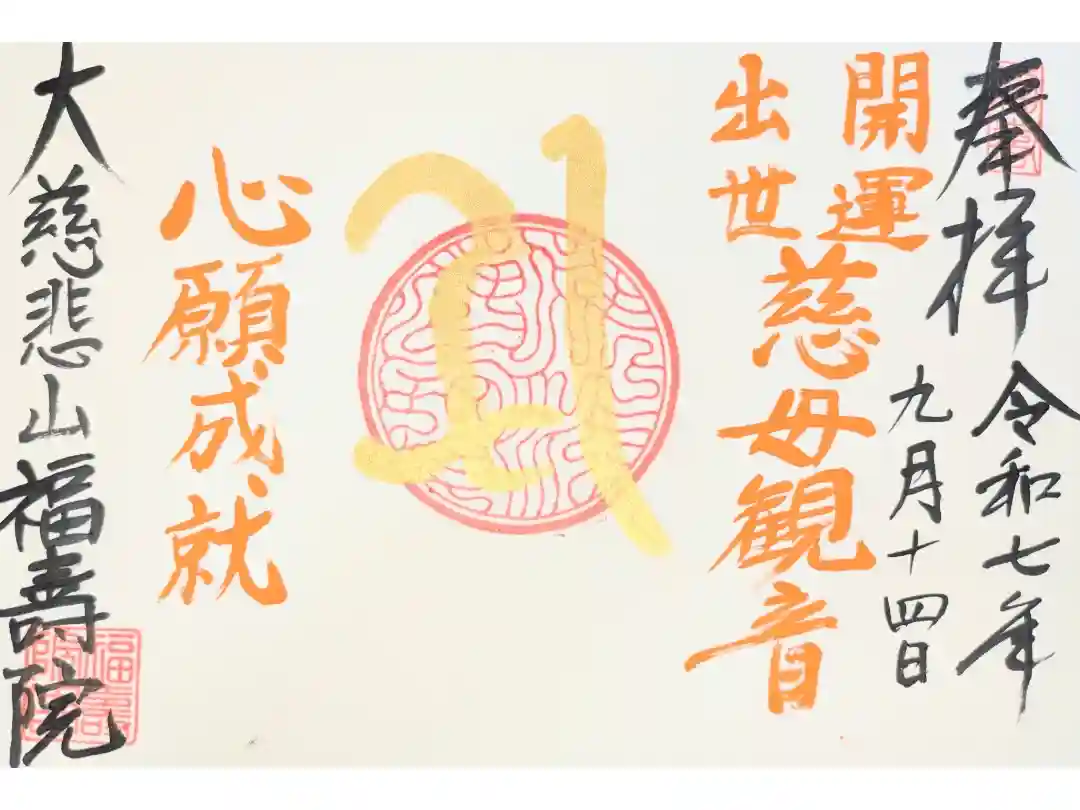 奉拝
令和七年
九月十四日
開運
出世
慈母観音
心願成就
大慈悲山福壽院
福壽院